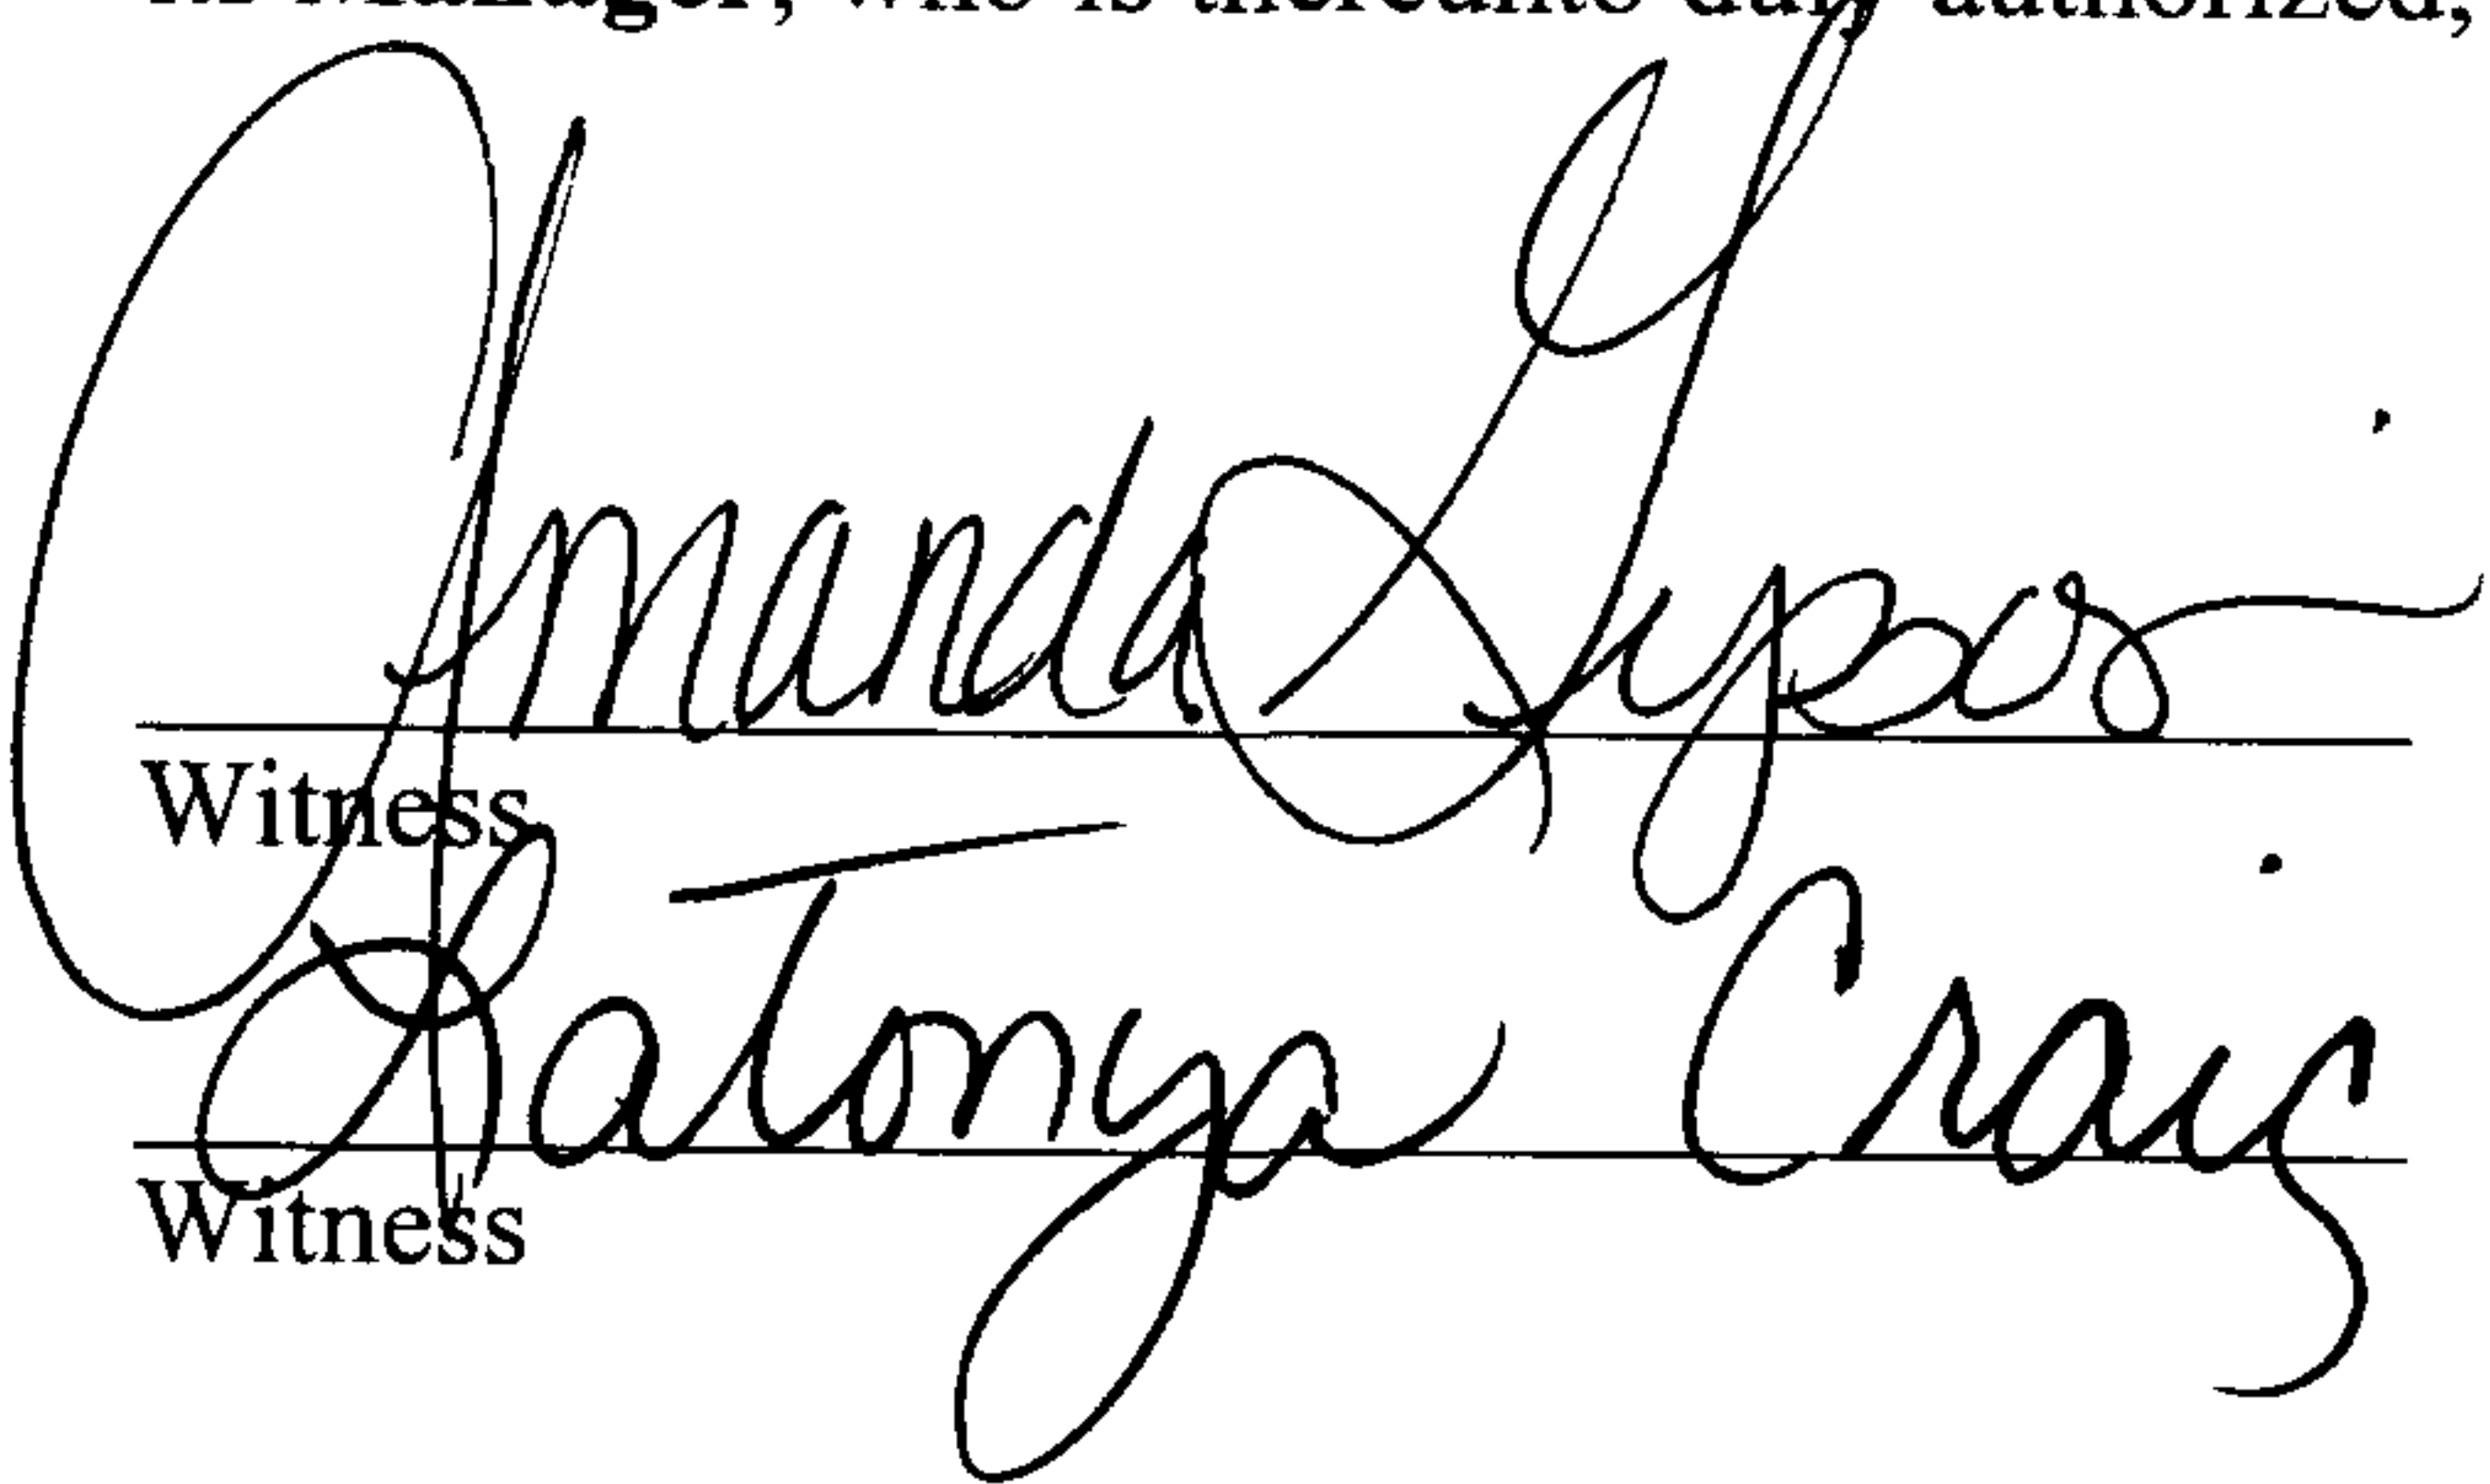 its Manager, who is thereunto duly authorized,
Amanda
Witness
LaTonya Craig
Witness